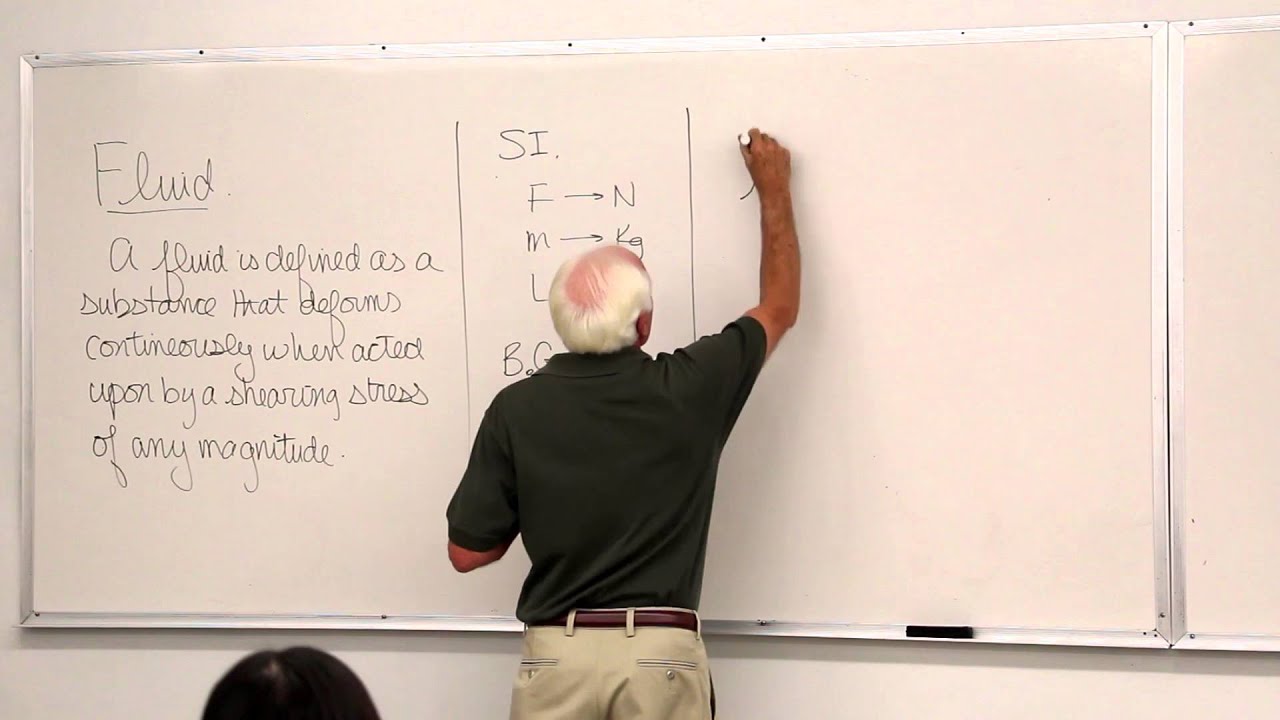 Fluid.
A fluid is defined as a
substance that deforms
contineously when acted
upon by a shearing stress
of any magnitude.
SI.
F → N
m → Kg
L
B.G